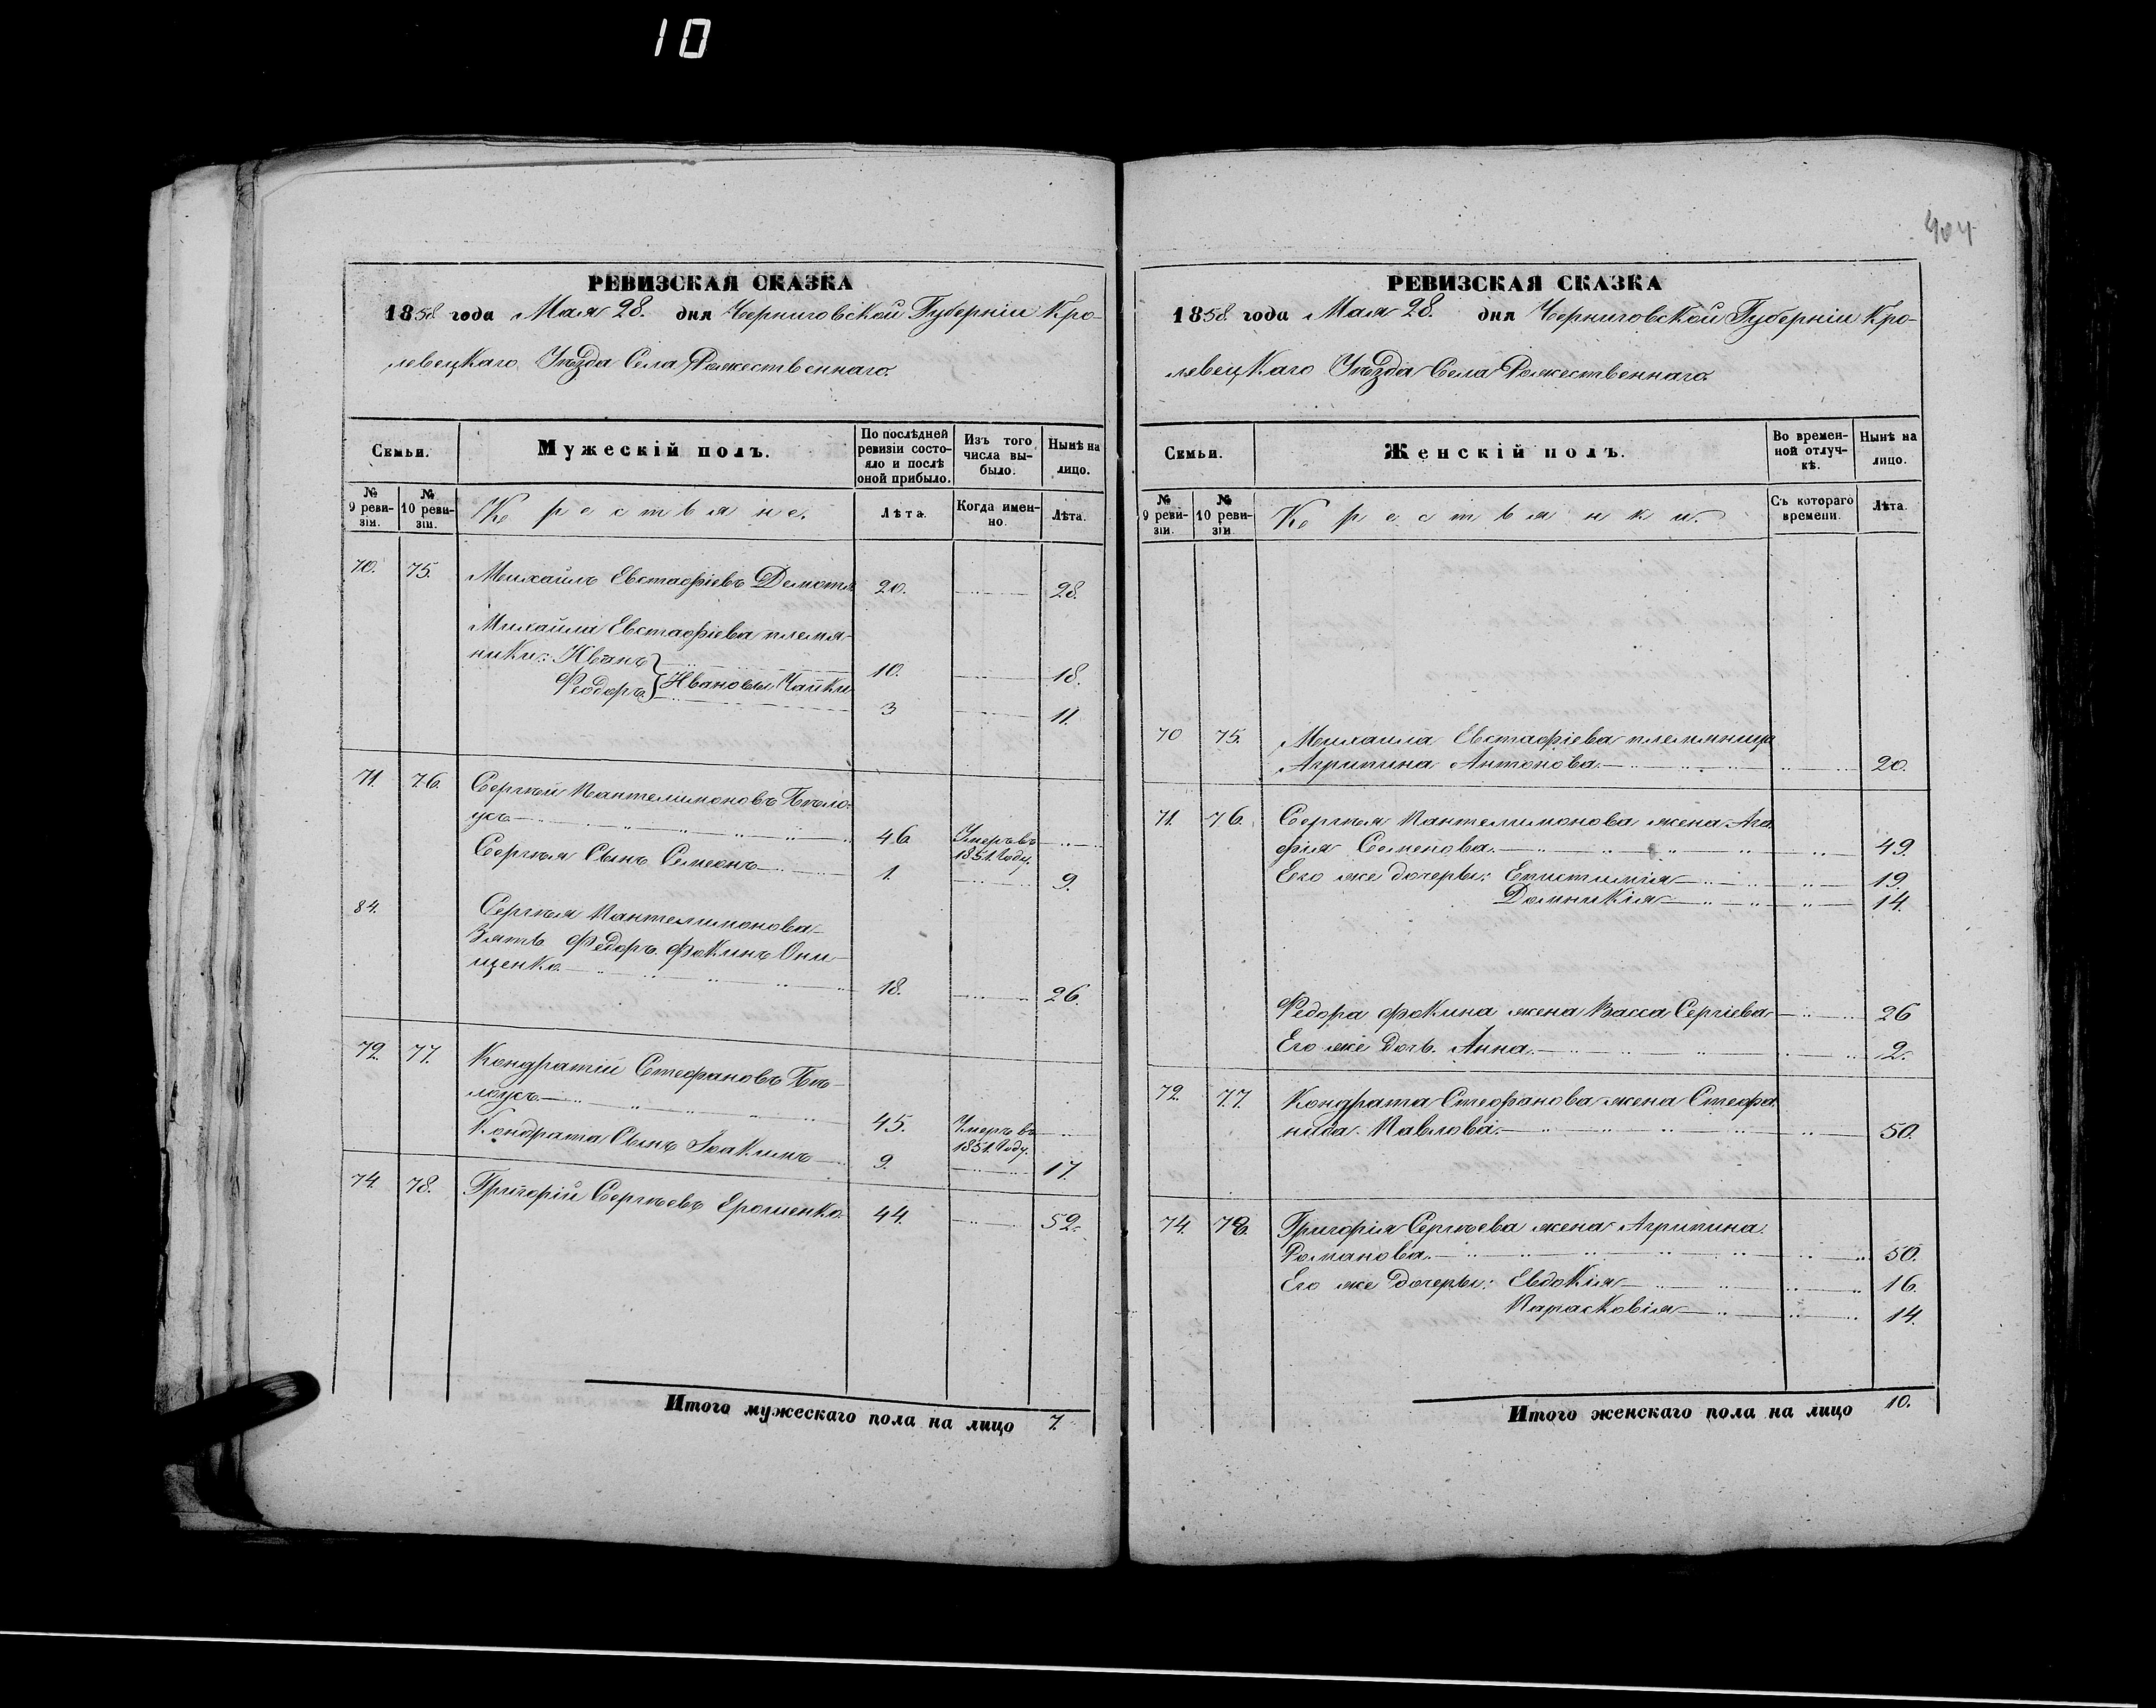 10
РЕВИЗСКАЯ СКАЗКА
1858 года Мая 28. дня Черниговской Губерніи Кро-
левецкаго Уѣзда Села Рожественнаго.
Семьи.
Мужескій полъ.
По послѣдней ревизіи состо-
яло и послѣ
оной прибыло.
Изъ того
числа вы-
было.
Нынѣ на
лицо.
№ 9 реви-
зіи.
№ 10 реви-
зіи.
Крестьяне.
Лѣта.
Когда имен-
но.
Лѣта.
70. 75. Михаилъ Евстафіевъ 20. 28.
Михаила Евстафіева племя-
ники: Иванъ 10. 18.
Феодоръ } Ивановы Чайки 3 11.
71. 76. Сергѣй Пантелимоновъ Бѣло-
усъ 46 Умеръ въ
1851. Году.
Сергѣя Сынъ Семенъ 1. 9.
84. Сергѣя Пантелимонова
Зять Федоръ Фокинъ Они-
щенко 18. 26.
72. 77. Кондратій Стефановъ Бѣ-
лоусъ 45. Умеръ въ
1851. Году.
Кондрата Сынъ Іоакимъ 9. 17.
74. 78. Григорій Сергѣевъ Ерошенко 44. 52.
Итого мужескаго пола на лицо 7.
404
РЕВИЗСКАЯ СКАЗКА
1858 года Мая 28. дня Черниговской Губерніи Кро-
левецкаго Уѣзда Села Рожественнаго.
Семьи.
Женскій полъ.
Во времен-
ной отлуч-
кѣ.
Нынѣ на
лицо.
№ 9 реви-
зіи.
№ 10 реви-
зіи.
Крестьянки.
Съ котораго
времени.
Лѣта.
70 75. Михаила Евстафіева племянница
Агрипина Антонова 20.
71. 76. Сергѣя Пантелимонова жена Ага
фія Семенова 49.
Его же дочеры: Епистимія 19.
Домникія 14.
Федора Фокина жена Васса Сергіева 26
Его же Дочь Анна 2.
72. 77. Кондрата Стефанова жена Стефа
нида Павлова 50.
74. 78. Григорія Сергѣева жена Агрипина
Романова 50.
Его же Дочеры: Евдокія 16.
Парасковія 14.
Итого женскаго пола на лицо 10.